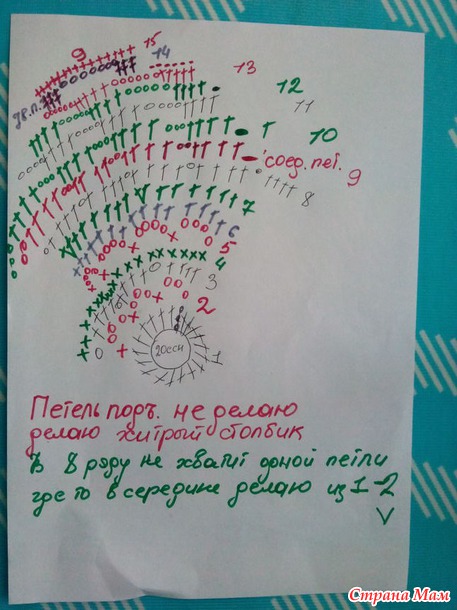 9
15
14
13
12
11
10
соед. пет.
9
8
7
6
5
4
3
2
1
20ссн
Петель подъ. не делаю
делаю хитрый столбик
В 8 ряду не хватит одной петли
где то в середине делаю из 1-2
V
Страна Мам